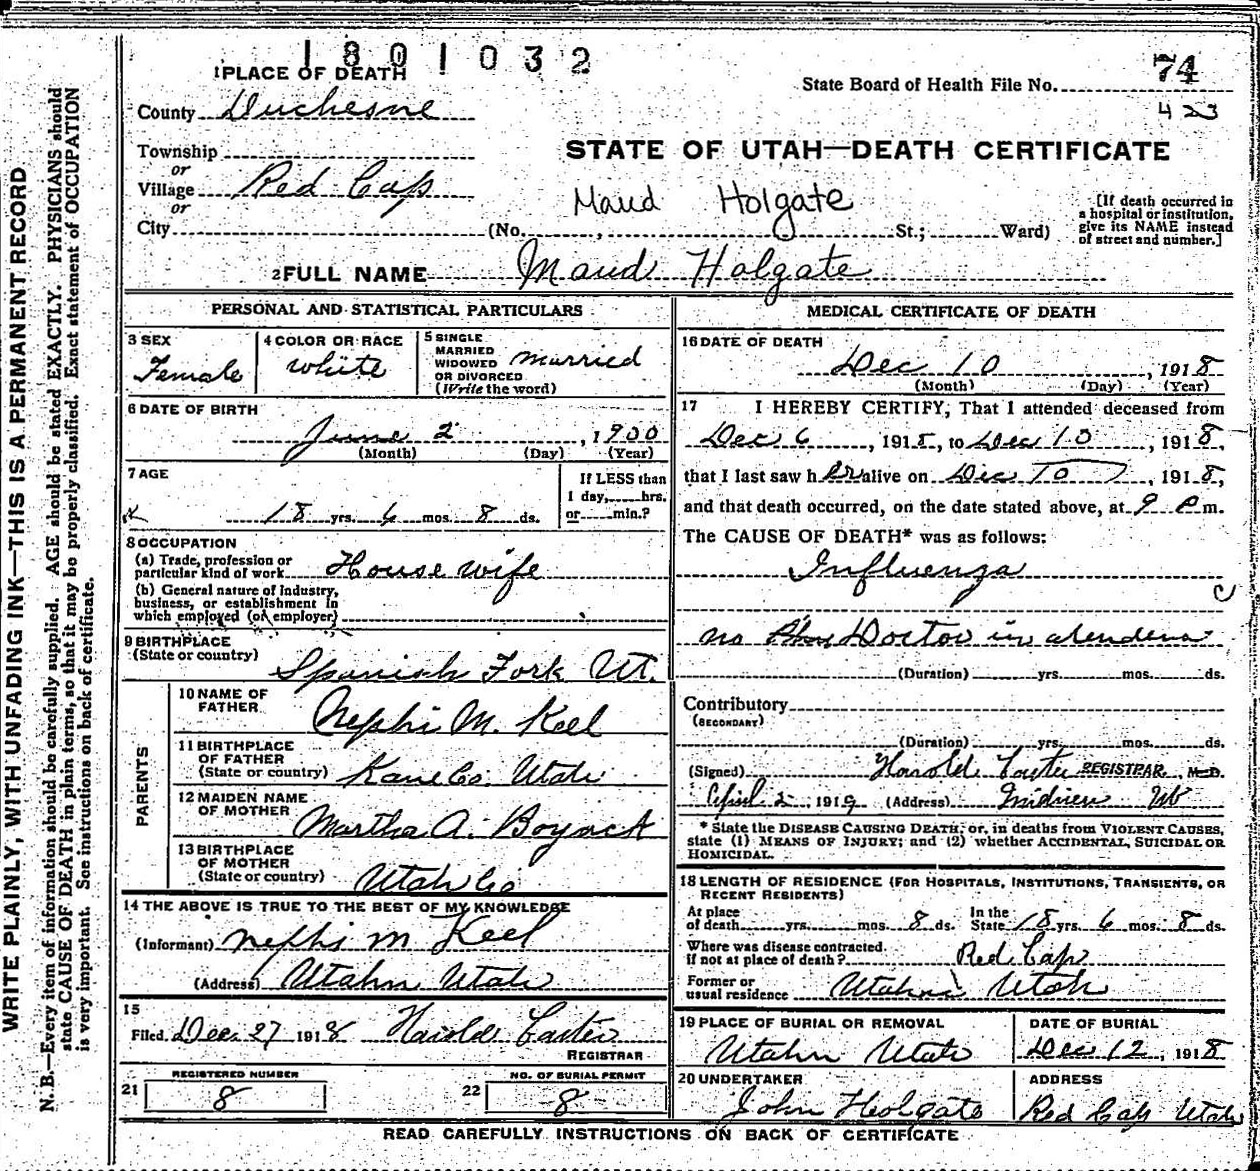 1801032
74
1 PLACE OF DEATH
State Board of Health File No.
423
County Duchesne
Township
or
Village Red Cap
or
City
STATE OF UTAH—DEATH CERTIFICATE
Maud Holgate
(No. , St.; Ward)
[If death occurred in
a hospital or institution,
give its NAME instead
of street and number.]
2 FULL NAME Maud Holgate
PERSONAL AND STATISTICAL PARTICULARS
3 SEX
Female
4 COLOR OR RACE
White
5 SINGLE
MARRIED
WIDOWED
OR DIVORCED
(Write the word)
married
6 DATE OF BIRTH
June 2 , 1900
(Month) (Day) (Year)
7 AGE
18 yrs. 6 mos. 8 ds.
If LESS than
1 day, hrs.
or min.?
8 OCCUPATION
(a) Trade, profession or
particular kind of work House wife
(b) General nature of industry,
business, or establishment in
which employed (or employer)
9 BIRTHPLACE
(State or country)
Spanish Fork Ut.
PARENTS
10 NAME OF
FATHER
Nephi M. Keel
11 BIRTHPLACE
OF FATHER
(State or country) Kane Co. Utah
12 MAIDEN NAME
OF MOTHER
Martha A. Boyack
13 BIRTHPLACE
OF MOTHER
(State or country)
Utah Co
14 THE ABOVE IS TRUE TO THE BEST OF MY KNOWLEDGE
(Informant) Nephi M Keel
(Address) Utahn Utah
15
Filed Dec. 27 1918 Harold Carter
REGISTRAR
21 REGISTERED NUMBER
8
22 NO. OF BURIAL PERMIT
8
MEDICAL CERTIFICATE OF DEATH
16 DATE OF DEATH
Dec 10 , 1918
(Month) (Day) (Year)
17 I HEREBY CERTIFY, That I attended deceased from
Dec 6 , 1918, to Dec 10 , 1918,
that I last saw her alive on Dec 10 , 1918,
and that death occurred, on the date stated above, at 9 P m.
The CAUSE OF DEATH* was as follows:
Influenza
no Doctor in
(Duration) yrs. mos. ds.
Contributory
(SECONDARY)
(Duration) yrs. mos. ds.
(Signed) Harold Carter REGISTRAR M. D.
April 2, 1919 (Address) Ut
* State the DISEASE CAUSING DEATH; or, in deaths from VIOLENT CAUSES,
state (1) MEANS OF INJURY; and (2) whether ACCIDENTAL, SUICIDAL OR
HOMICIDAL.
18 LENGTH OF RESIDENCE (FOR HOSPITALS, INSTITUTIONS, TRANSIENTS, OR
RECENT RESIDENTS)
At place
of death yrs. mos. 8 ds.
In the
State 18 yrs. 6 mos. 8 ds.
Where was disease contracted.
If not at place of death? Red Cap
Former or
usual residence Utahn Utah
19 PLACE OF BURIAL OR REMOVAL
Utahn Utah
DATE OF BURIAL
Dec 12, 1918
20 UNDERTAKER
John Holgate
ADDRESS
Red Cap Utah
READ CAREFULLY INSTRUCTIONS ON BACK OF CERTIFICATE
WRITE PLAINLY, WITH UNFADING INK—THIS IS A PERMANENT RECORD
N. B.—Every item of information should be carefully supplied. AGE should be stated EXACTLY. PHYSICIANS should
state CAUSE OF DEATH in plain terms, so that it may be properly classified. Exact statement of OCCUPATION
is very important. See instructions on back of certificate.